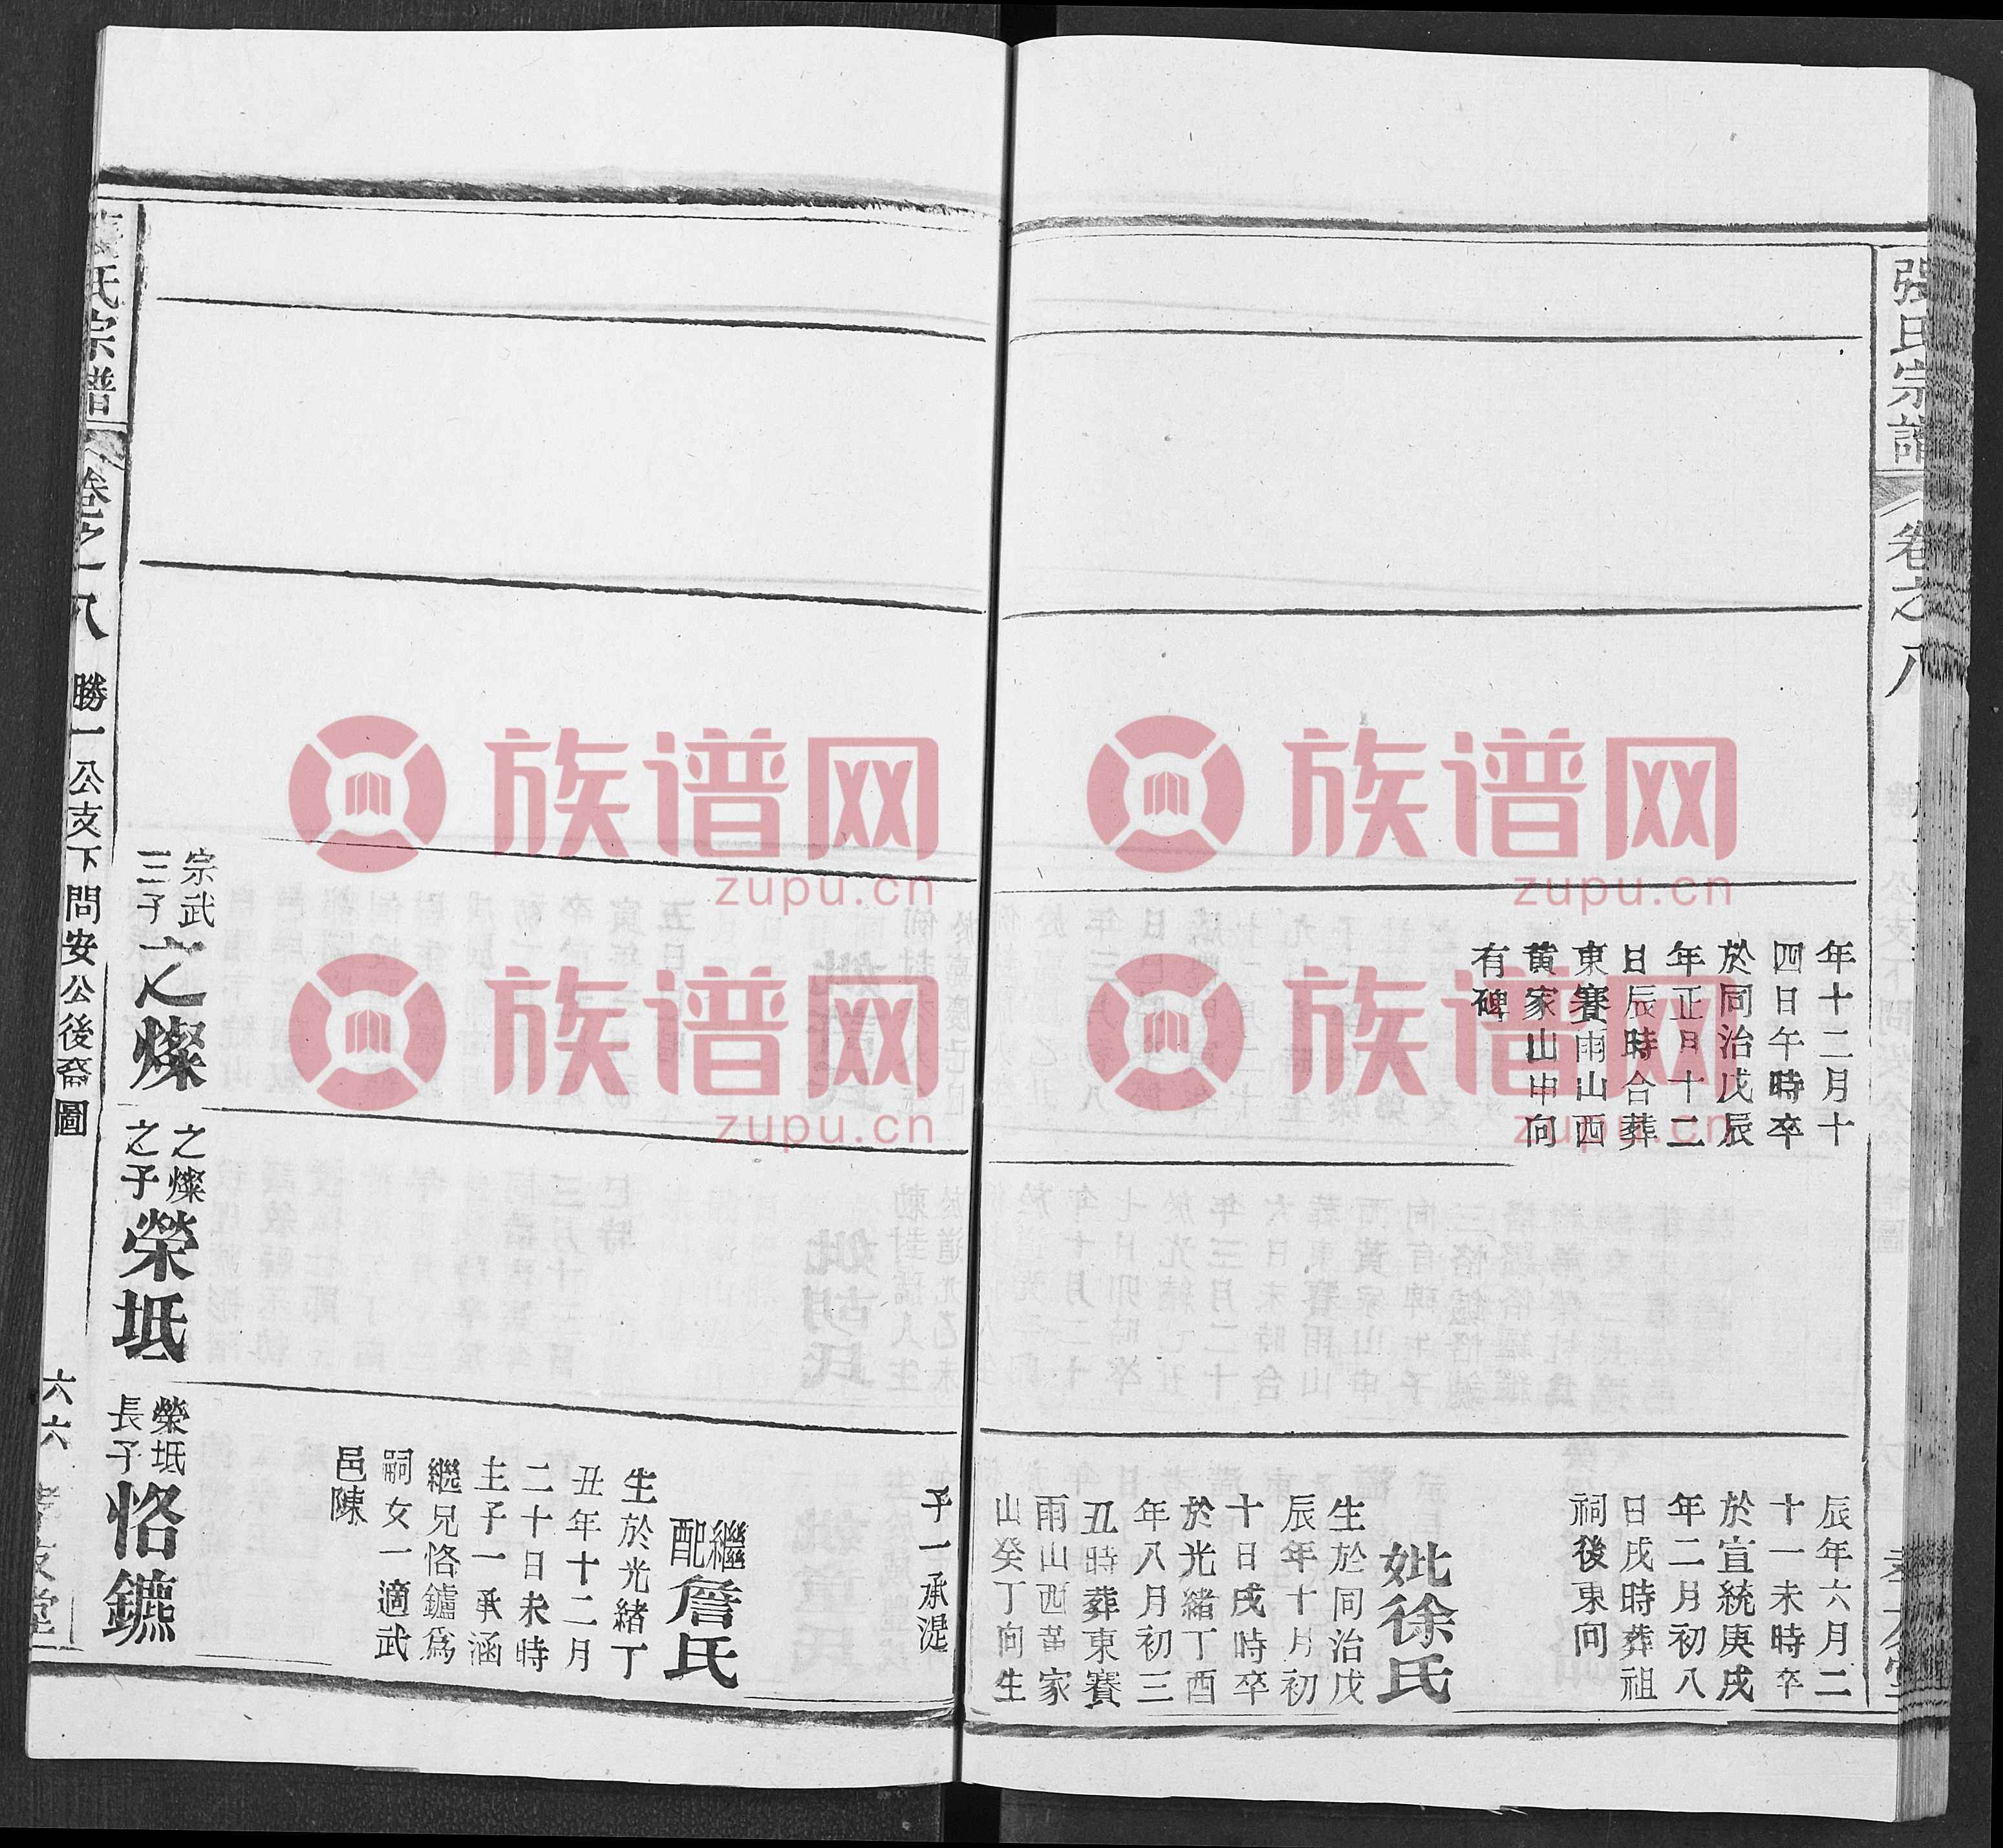 張氏宗譜
卷之八
年十二月十
四日午時卒
於同治戊辰
年正月十二
日辰時合葬
東賽雨山西
黄家山申向
有碑
辰年六月二
十一未時卒
於宣統庚戌
年二月初八
日戌時葬祖
祠後東向
妣徐氏
生於同治戊
辰年十月初
十日戌時卒
於光緒丁酉
年八月初三
丑時葬東賽
雨山西黄家
山癸丁向生
子一承湜
繼配詹氏
生於光緒丁
丑年十二月
二十日未時
主子一承涵
繼兄恪鑪爲
嗣女一適武
邑陳
宗武
三子
之燦
之燦
之子
榮坻
榮坻
長子
恪鑣
氏宗譜
卷之八
勝一公支下問安公後裔圖
六六
孝友堂
族谱网
zupu.cn
族谱网
zupu.cn
族谱网
zupu.cn
族谱网
zupu.cn